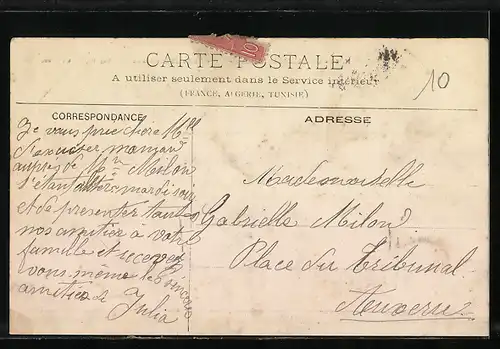 CARTE POSTALE
10
A utiliser seulement dans le Service intérieur
(FRANCE, ALGERIE, TUNISIE)
10
CORRESPONDANCE
Je vous prie chère Mlle
d'excuser
auprès de Mr Milon
mardi soir
et de présenter toutes
nos amitiés à votre
famille et recevez
vous même les sincères
amitiés de Julia
ADRESSE
Mademoiselle
Gabrielle Milon
Place du Tribunal
Auxerre